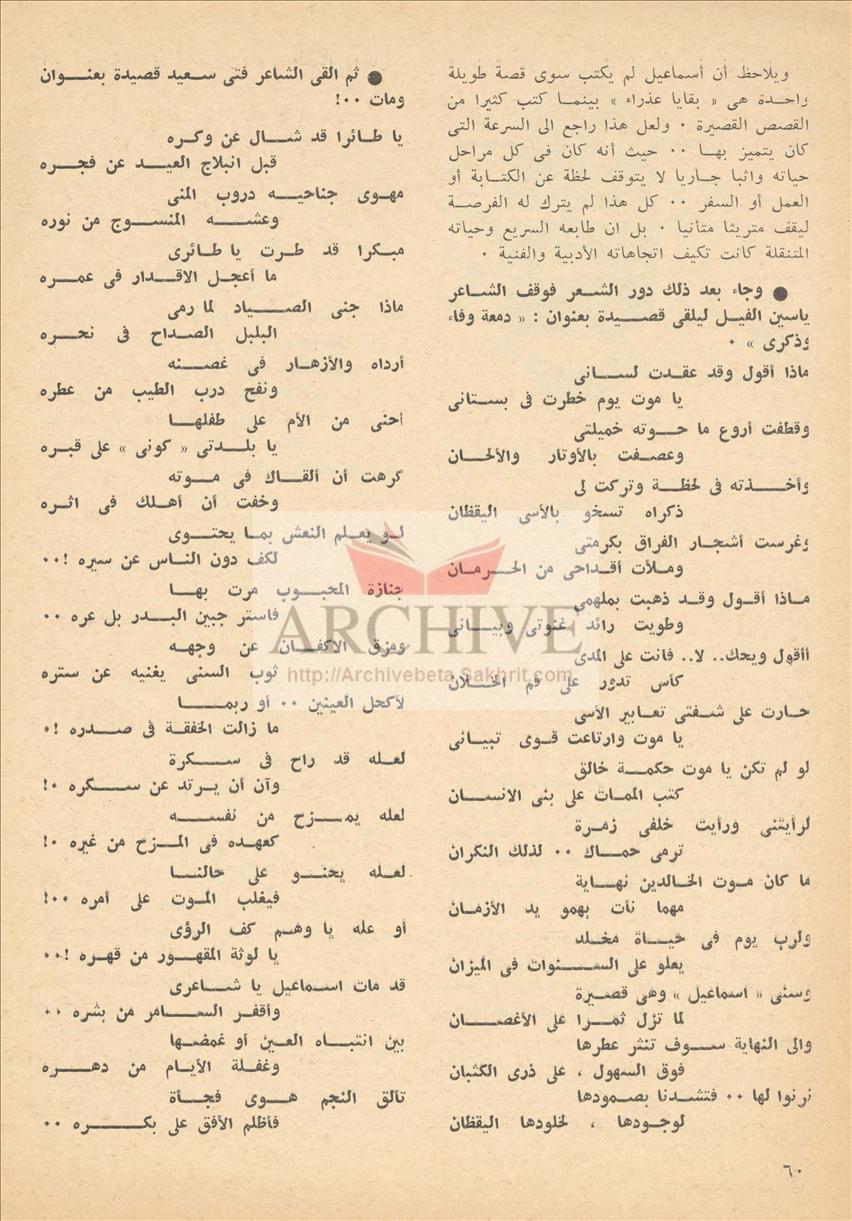 ويلاحظ أن أسماعيل لم يكتب سوى قصة طويلة
واحدة هى « بقايا عذراء » بينما كتب كثيرا من
القصص القصيرة ٠ ولعل هذا راجع الى السرعة التى
كان يتميز بها ٠٠ حيث أنه كان فى كل مراحل
حياته واثبا جاريا لا يتوقف لحظة عن الكتابة أو
العمل أو السفر ٠٠ كل هذا لم يترك له الفرصة
ليقف متريثا متأنيا ٠ بل ان طابعه السريع وحياته
المتنقلة كانت تكيف اتجاهاته الأدبية والفنية ٠
● وجاء بعد ذلك دور الشعر فوقف الشاعر
ياسين الفيل ليلقى قصيدة بعنوان : « دمعة وفاء
وذكرى » ٠
ماذا أقول وقد عقدت لسانى
يا موت يوم خطرت فى بستانى
وقطفت أروع ما حوته خميلتى
وعصفت بالأوتار والألحان
وأخذته فى لحظة وتركت لى
ذكراه تسخو بالأسى اليقظان
وغرست أشجار الفراق بكرمتى
وملأت أقداحى من الحرمان
ماذا أقول وقد ذهبت بملهمى
وطويت رائد غنوتى وبيانى
أأقول ويحك.. لا.. فانت على المدى
كأس تدور على فم الخلان
حارت على شفتى تعابير الأسى
يا موت وارتاعت قوى تبيانى
لو لم تكن يا موت حكمة خالق
كتب الممات على بنى الانسان
لرأيتنى ورأيت خلفى زمرة
ترمى حماك ٠٠ لذلك النكران
ما كان موت الخالدين نهاية
مهما نأت بهمو يد الأزمان
ولرب يوم فى حياة مخلد
يعلو على السنوات فى الميزان
وسنى « اسماعيل » وهى قصيرة
لما تزل ثمرا على الأغصان
والى النهاية سوف تنثر عطرها
فوق السهول ، على ذرى الكثبان
نرنوا لها ٠٠ فتشدنا بصمودها
لوجودها ، لخلودها اليقظان
● ثم القى الشاعر فتى سعيد قصيدة بعنوان
ومات ٠٠!
يا طائرا قد شال عن وكره
قبل انبلاج العيد عن فجره
مهوى جناحيه دروب المنى
وعشه المنسوج من نوره
مبكرا قد طرت يا طائرى
ما أعجل الاقدار فى عمره
ماذا جنى الصياد لما رمى
البلبل الصداح فى نحره
أرداه والأزهار فى غصنه
ونفح درب الطيب من عطره
أحنى من الأم على طفلها
يا بلدتى « كونى » على قبره
كرهت أن ألقاك فى موته
وخفت أن أهلك فى اثره
لو يعلم النعش بما يحتوى
لكف دون الناس عن سيره !٠٠
جنازة المحبوب مرت بها
فاستر جبين البدر بل عره ٠٠
ومزق الاكفان عن وجهه
ثوب السنى يغنيه عن ستره
لأكحل العينين ٠٠ أو ربما
ما زالت الخفقة فى صدره !٠
لعله قد راح فى سكرة
وآن أن يرتد عن سكره ٠!
لعله يمزح من نفسه
كعهده فى المزح من غيره ٠!
لعله يحنو على حالنا
فيغلب الموت على أمره ٠٠!
أو عله يا وهم كف الرؤى
يا لوثة المقهور من قهره !٠٠
قد مات اسماعيل يا شاعرى
وأقفر السامر من بشره ٠٠
بين انتباه العين أو غمضها
وغفلة الأيام من دهره
تألق النجم هوى فجأة
فأظلم الأفق على بكره ٠٠
ARCHIVE
http://Archivebeta.Sakhrit.com
٦٠